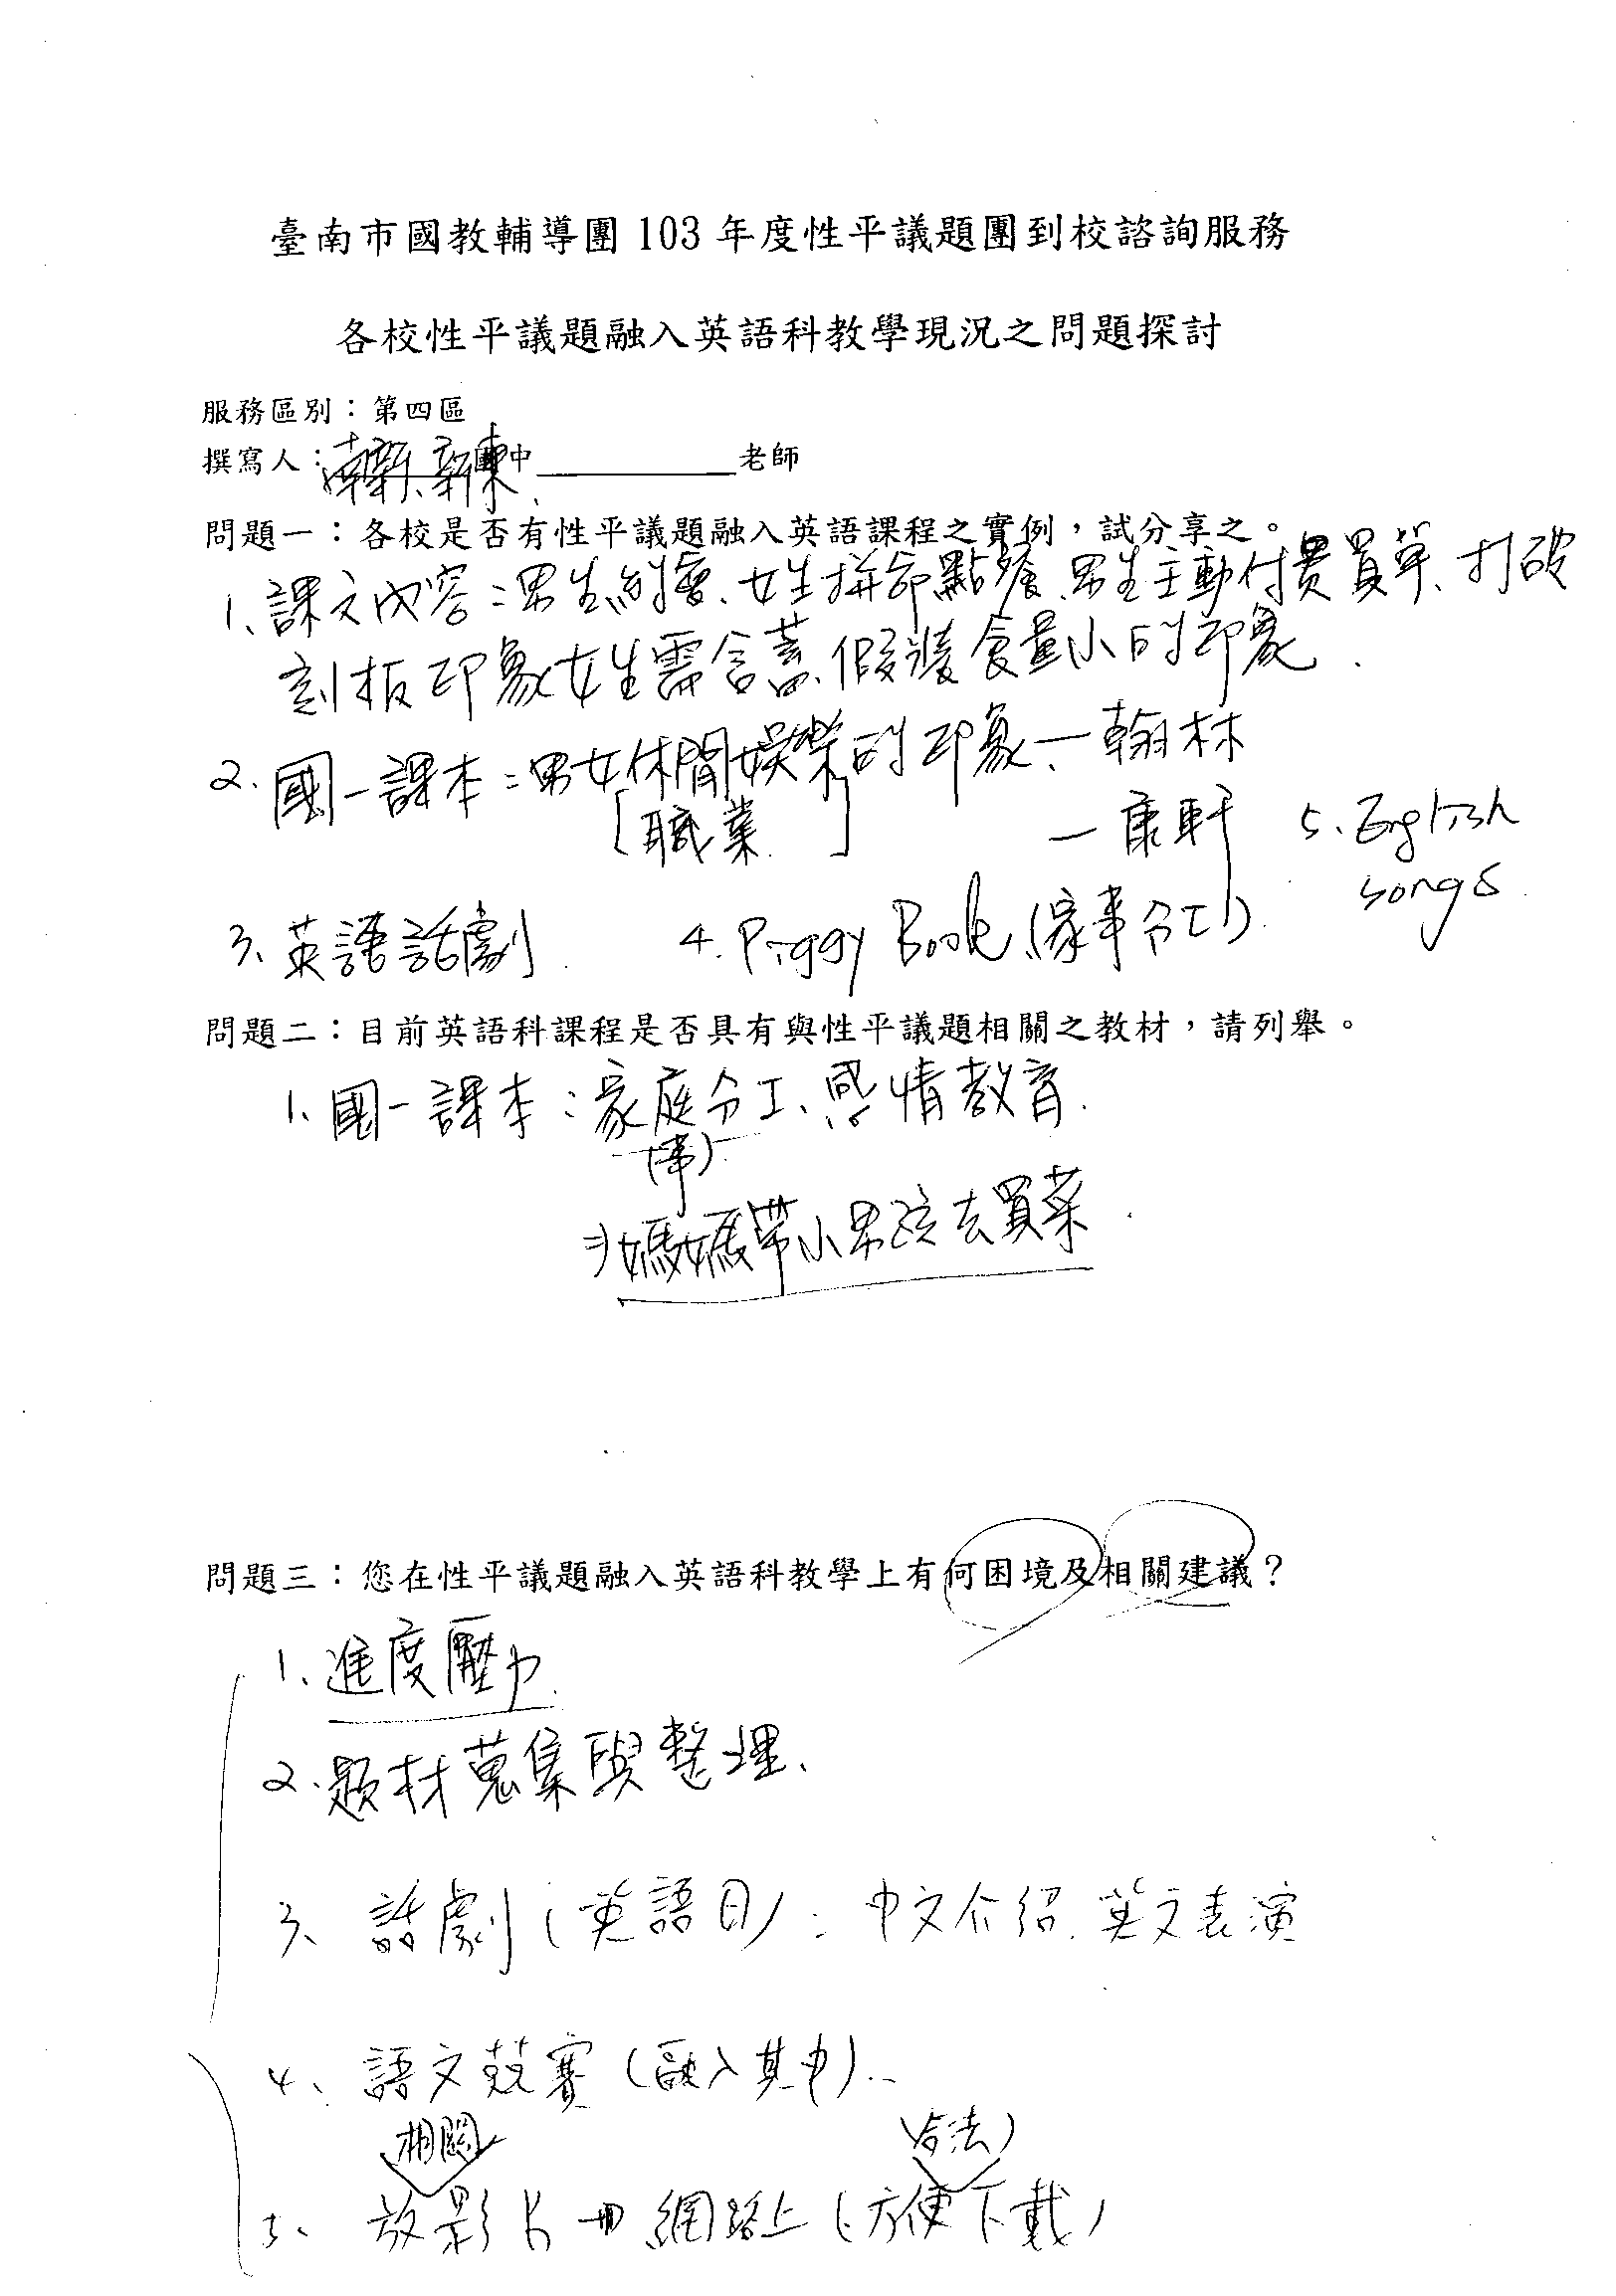 臺南市國教輔導團 103 年度性平議題團到校諮詢服務
各校性平議題融入英語科教學現況之問題探討
服務區別：第四區
撰寫人：南新、新東 國中 老師
問題一：各校是否有性平議題融入英語課程之實例，試分享之。
1、課文內容：男生約會、女生拚命點餐、男生主動付費買單、打破
刻板印象女生需含蓄、假裝食量小的印象.
2. 國一課本：男女休閒娛樂的印象、－翰林
[職業] －康軒 5. English
songs
3、英語話劇 4. Piggy Book (家事分工)
問題二：目前英語科課程是否具有與性平議題相關之教材，請列舉。
1. 國一課本：家庭分工、感情教育.
(事)
媽媽帶小男孩去買菜.
問題三：您在性平議題融入英語科教學上有何困境及相關建議？
1、進度壓力
2. 題材蒐集與整理、
3、話劇(英語日)：中文介紹.英文表演
4、語文競賽(融入其中)..
相關 (合法)
5、放影片 網路上(方便下載)